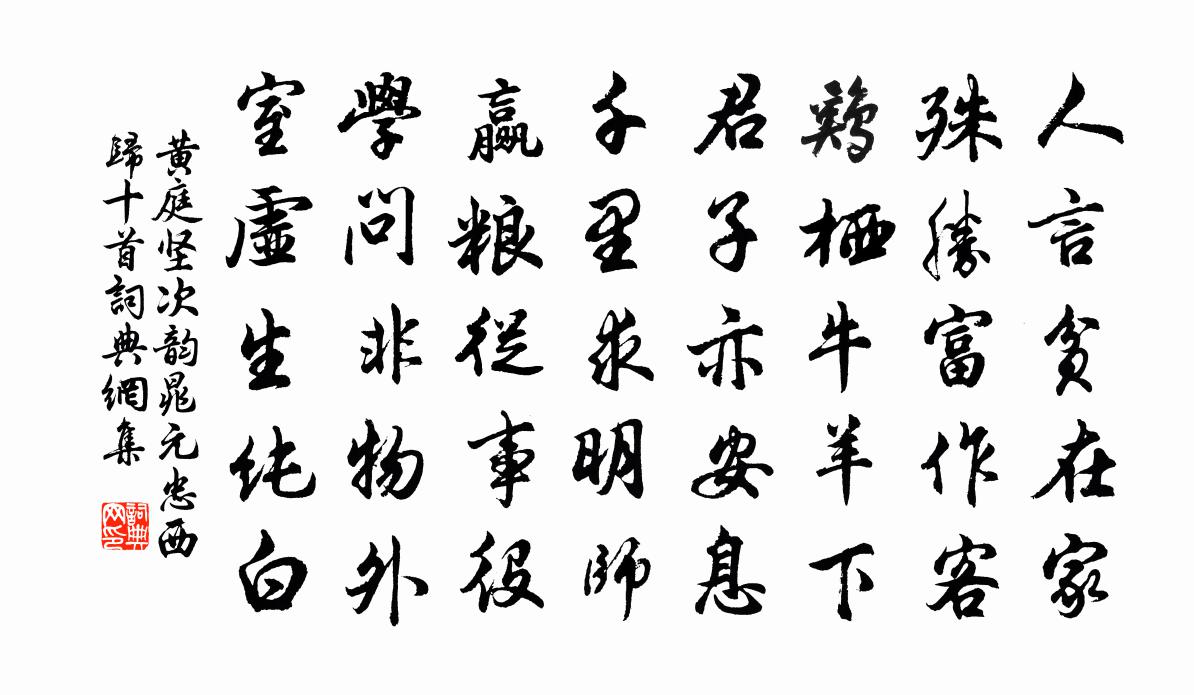 人言貧在家
殊勝富作客
鷄栖牛羊下
君子亦安息
千里求明師
贏粮從事役
學問非物外
室虛生純白
黄庭坚次韵晁元忠西
歸十首詞典網集
詞典
网印